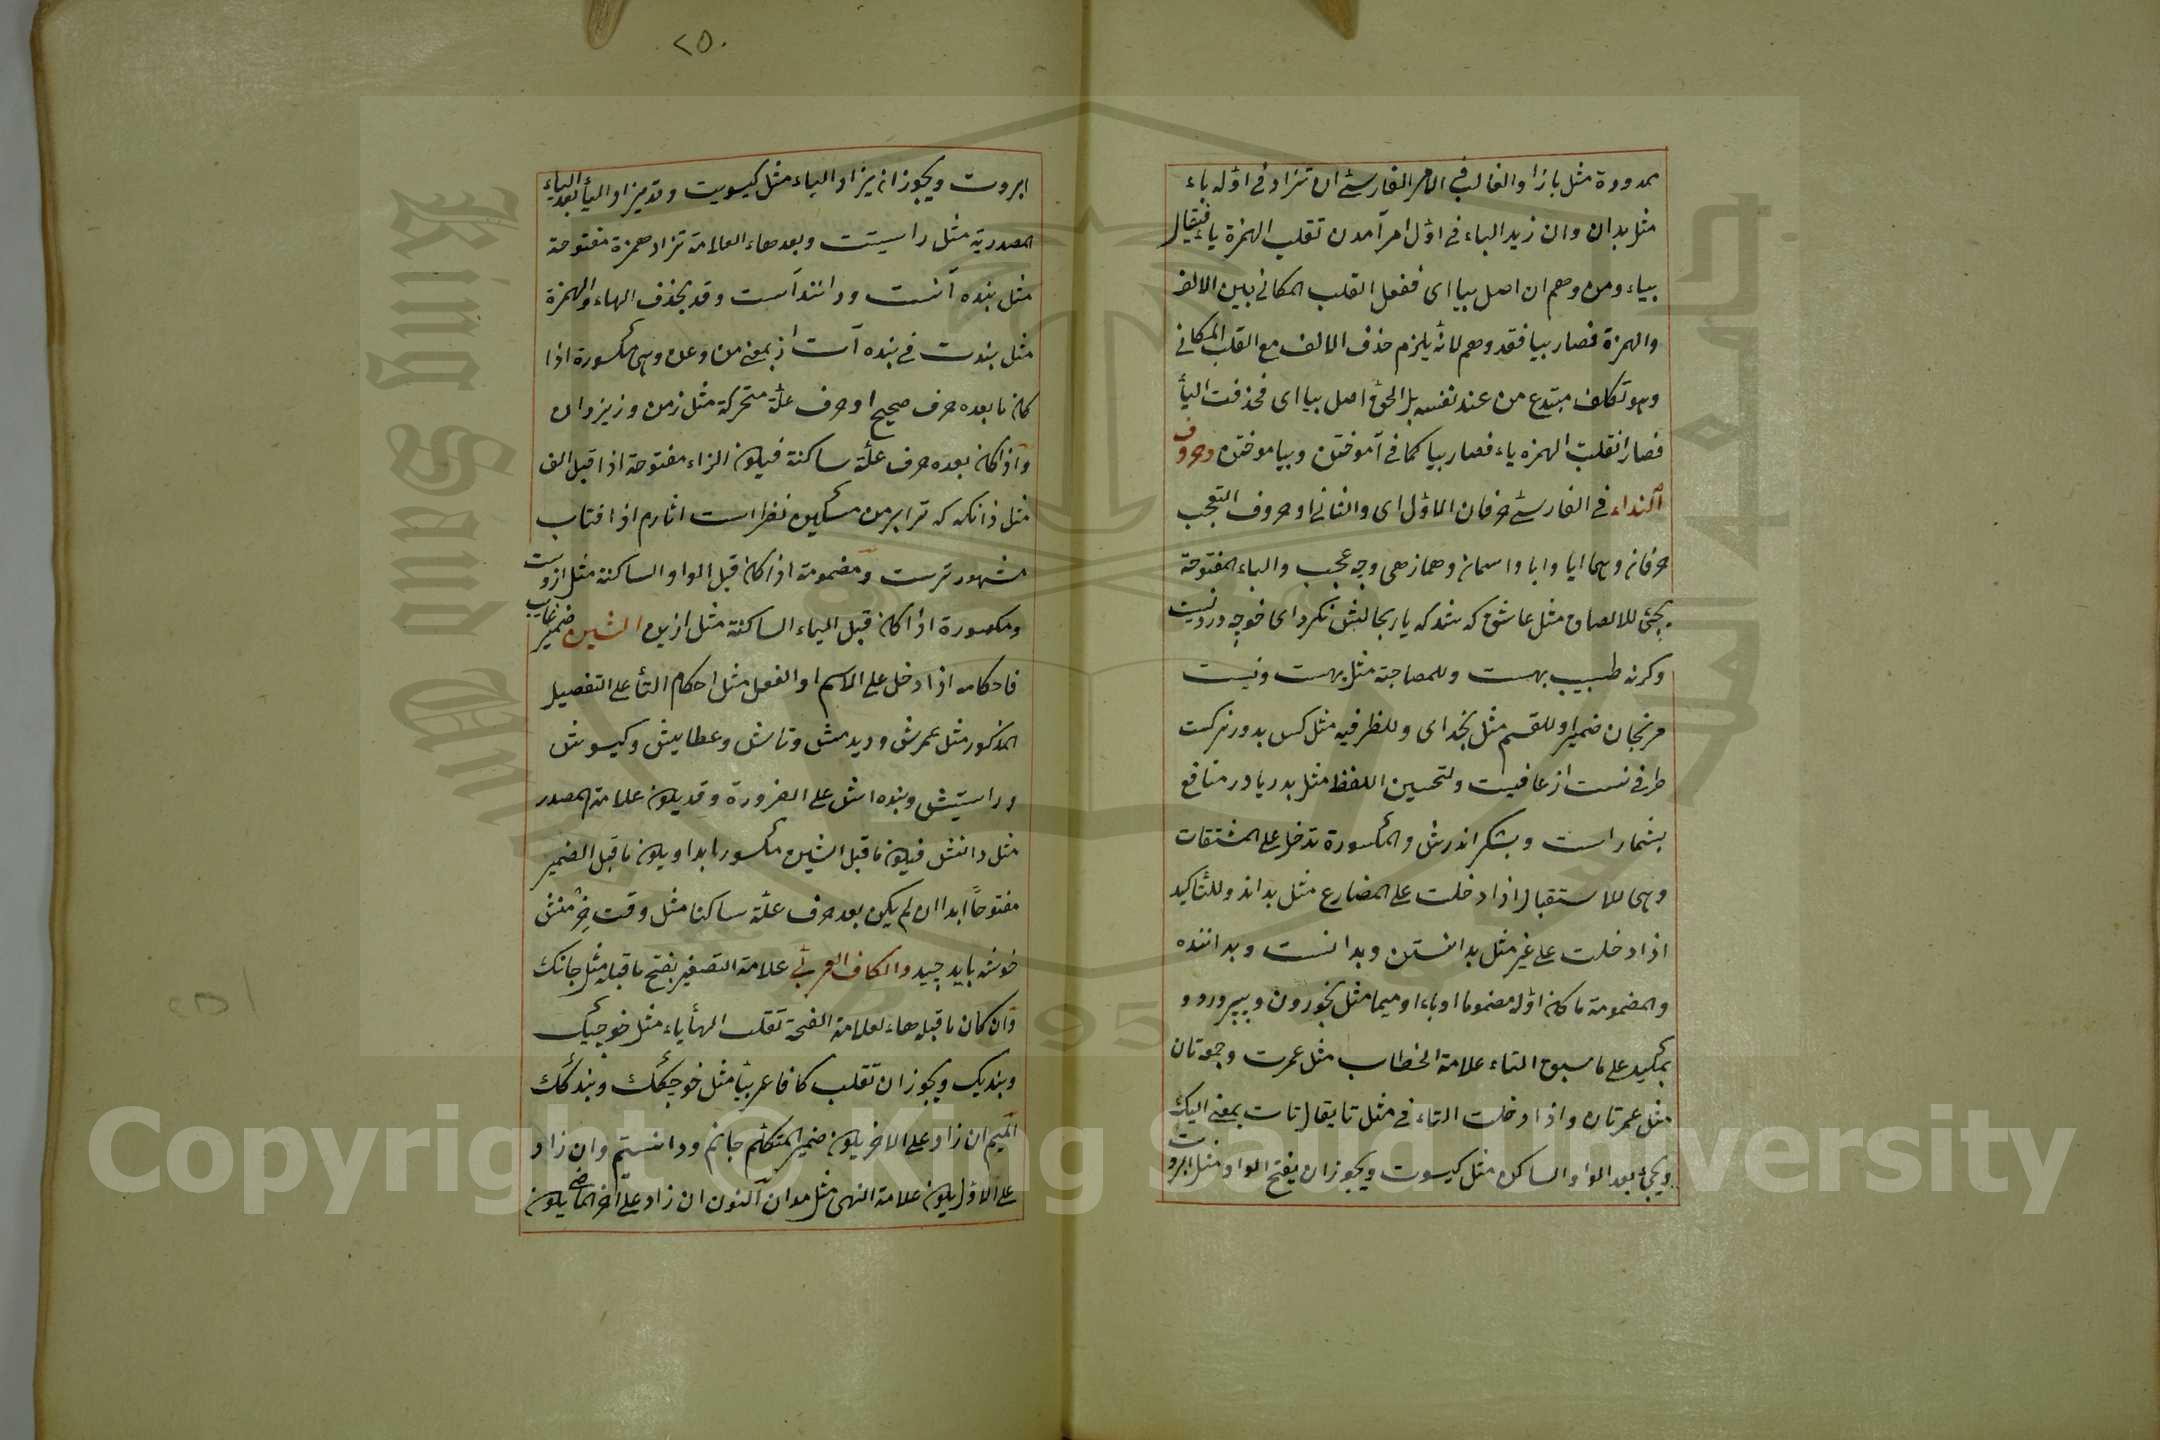 ٢٥٠
ممدودة مثل بازا والغالب في الامر الفارسي ان تزاد في اوله باء
مثل بدان وان زيد الباء في اول امر آمدن تقلب الهمزة ياء فيقال
بياء ومن وهم ان اصل بيا اى ففعل القلب المكاني بين الالف
والهمزة فصار بيا فقد وهم لانه يلزم حذف الالف مع القلب المكاني
وهو تكلف مبتدع من عند نفسه بل الحق اصل بيا اى فحذفت اليأ
فصار انقلبت الهمزه ياء فصار بيا كما في آموختن وبياموختن وحروف
النداء في الفارسي حرفان الاول اى والثاني او حروف التعجب
حرفان وهما ايا وابا واسمان وهما زهى وچه عجب والباء المفتوحة
يجئ للالصاق مثل عاشق كه شد كه يار بحالش نكرد اى خوجه درد نيست
وكرنه طبيب بهست وللمصاحبة مثل بهست ونيست
مرنجان ضمير وللقسم مثل بخداى وللظرفيه مثل كس بدور نركست
طرفى نبست از عافيت ولتحسين اللفظ مثل بدريا در منافع
بشمار است وبشكر اندرش والمكسورة تدخل على المشتقات
وهى للاستقبال اذا دخلت على المضارع مثل بداند وللتأكيد
اذا دخلت على غير مثل بدانستن وبدانست وبداننده
والمضمومة ما كان اوله مضموما او باء او ميما مثل بخوردن وبپرورد و
بمكيد على ما سبق التاء علامة الخطاب مثل عمرت وجمع تان
مثل عمرتان واذا دخلت التاء في مثل تا يقال تات بمعنى اليك
ويجئ بعد الواو الساكن مثل كيسوت ويجوز ان يفتح الواو مثل ابروت
ابروت ويجوز ان يزاد الياء مثل كيسويت وقد يزاد اليأ بعد الياء
المصدرية مثل راستيت وبعد هاء العلامة تزاد همزة مفتوحة
مثل بنده آنست وداننداست وقد يحذف الهاء والهمزة
مثل بندت في بنده آت از بمعنى من وعن وهى مكسورة اذا
كان ما بعده حرف صحيح او حرف علة متحركة مثل زمن وزيزدان
واذا كان بعده حرف علة ساكنة فيكون الزاء مفتوحة اذا قبل الف
مثل زانكه كه ترا بر من مسكين نظر است اثارم از افتاب
مشهورترست ومضمومة اذا كان قبل الواو الساكنة مثل ازوست
ومكسورة اذا كان قبل الياء الساكنة مثل ازين الشين ضمير غايب
فاحكامه اذا دخل على الاسم او الفعل مثل احكام التأ على التفصيل
المذكور مثل عمرش وديدمش وتاش وعطاييش وكيسوش
وراستيش وبنده اش على الضرورة وقد يكون علامة المصدر
مثل دانش فيكون ما قبل الشين مكسورا ابدا ويكون ما قبل الضمير
مفتوحاً ابدا ان لم يكن بعد حرف علة ساكنا مثل وقت خرمنش
خوشه بايد چيد والكاف العربي علامة التصغير بفتح ما قبله مثل جانك
وان كان ما قبله هاء لعلامة الفتحة تقلب الهأ ياء مثل خوجيك
وبنديك ويجوز ان تقلب كافا عربيا مثل خوجكك وبندكك
الميم ان زاد على الاخر يكون ضمير المتكلم جانم ودانستم وان زاد
على الاول يكون علامة النهى مثل مدان النون ان زاد على آخر الماضي يكون